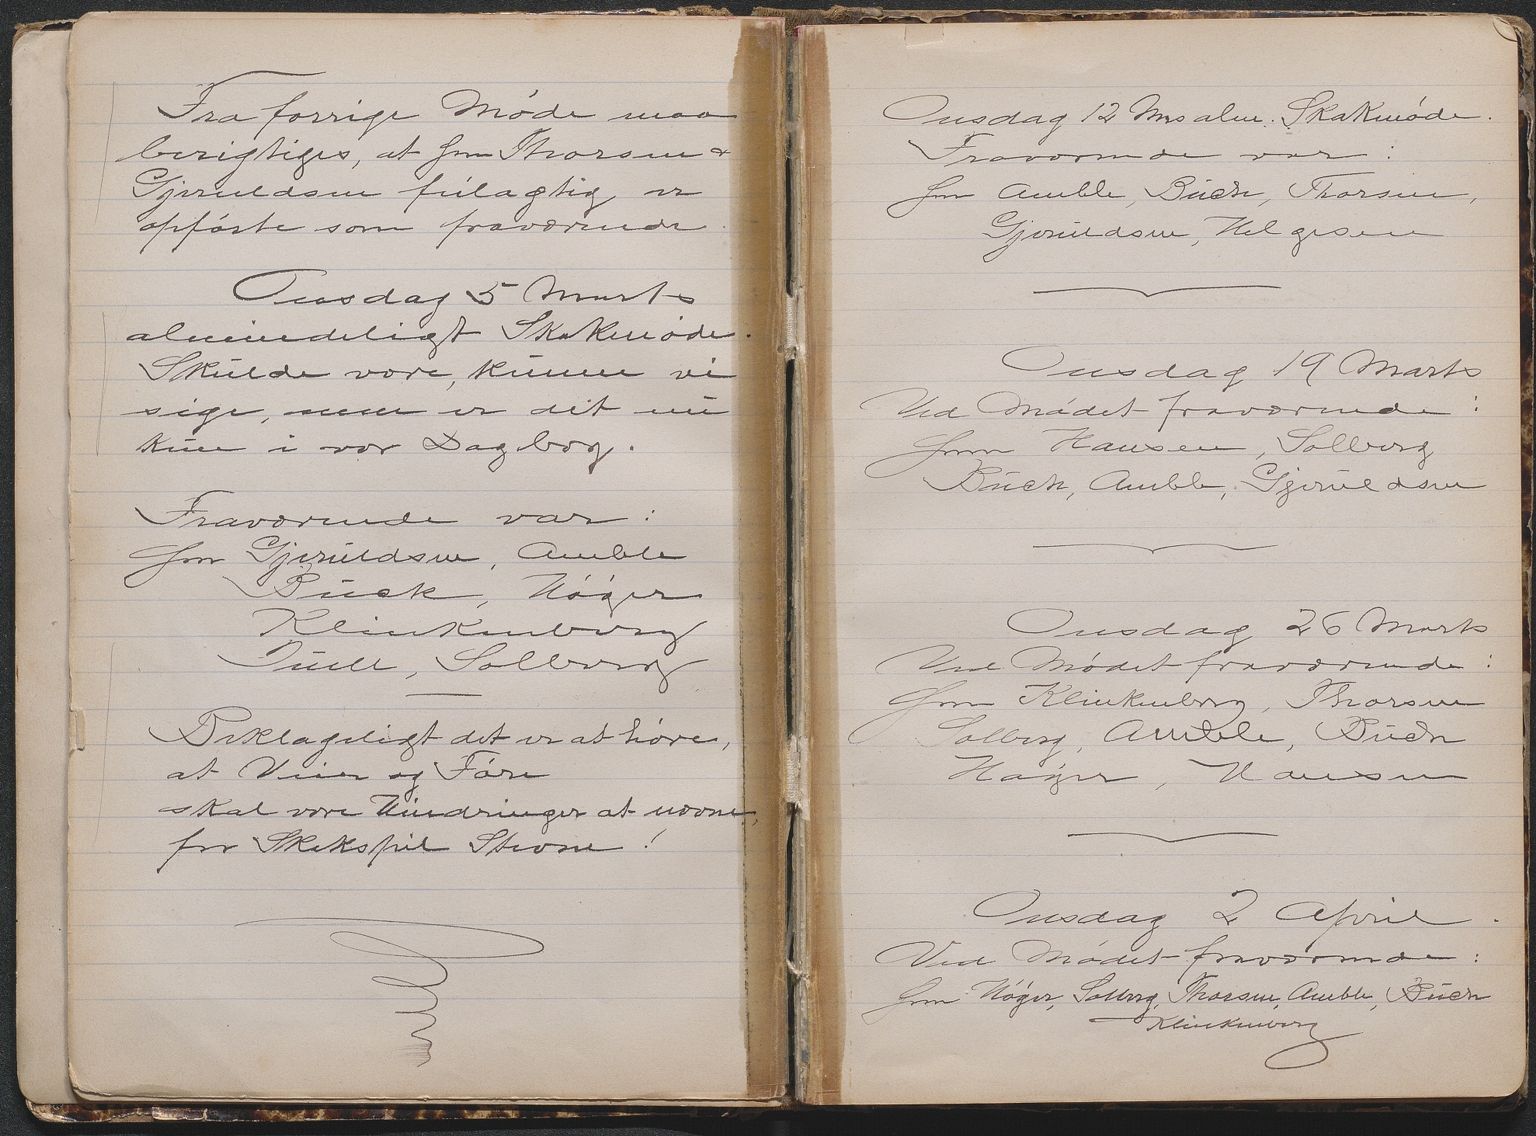 Fra forrige Møde maa
berigtiges, at Hrr Thorsen &
Gjeruldsen feilagtig er
opførte som fraværende.
Onsdag 5 Marts
almindeligt Skakmøde.
Skulde være, kunne vi
sige, men er det nu
kun i vor Dagbog.
Fraværende var:
Hrr Gjeruldsen, Amble
Buck, Høyer
Klinkenberg
Juell, Solberg
Beklageligt det er at høre,
at Veier og Føre
skal være Hindringer at nævne,
for Skakspil Stævne!
Onsdag 12 Mrs alm. Skakmøde.
Fraværende var:
Hrr Amble, Buch, Thorsen,
Gjeruldsen, Helgesen
Onsdag 19 Marts
Ved Mødet fraværende:
Hrr Hansen, Solberg
Buch, Amble, Gjeruldsen
Onsdag 26 Marts
Ved Mødet fraværende:
Hrr Klinkenberg, Thorsen
Solberg, Amble, Buch
Høyer, Hansen
Onsdag 2 April.
Ved Mødet fraværende:
Hrr Høyer, Solberg, Thorsen, Amble, Buch
Klinkenberg